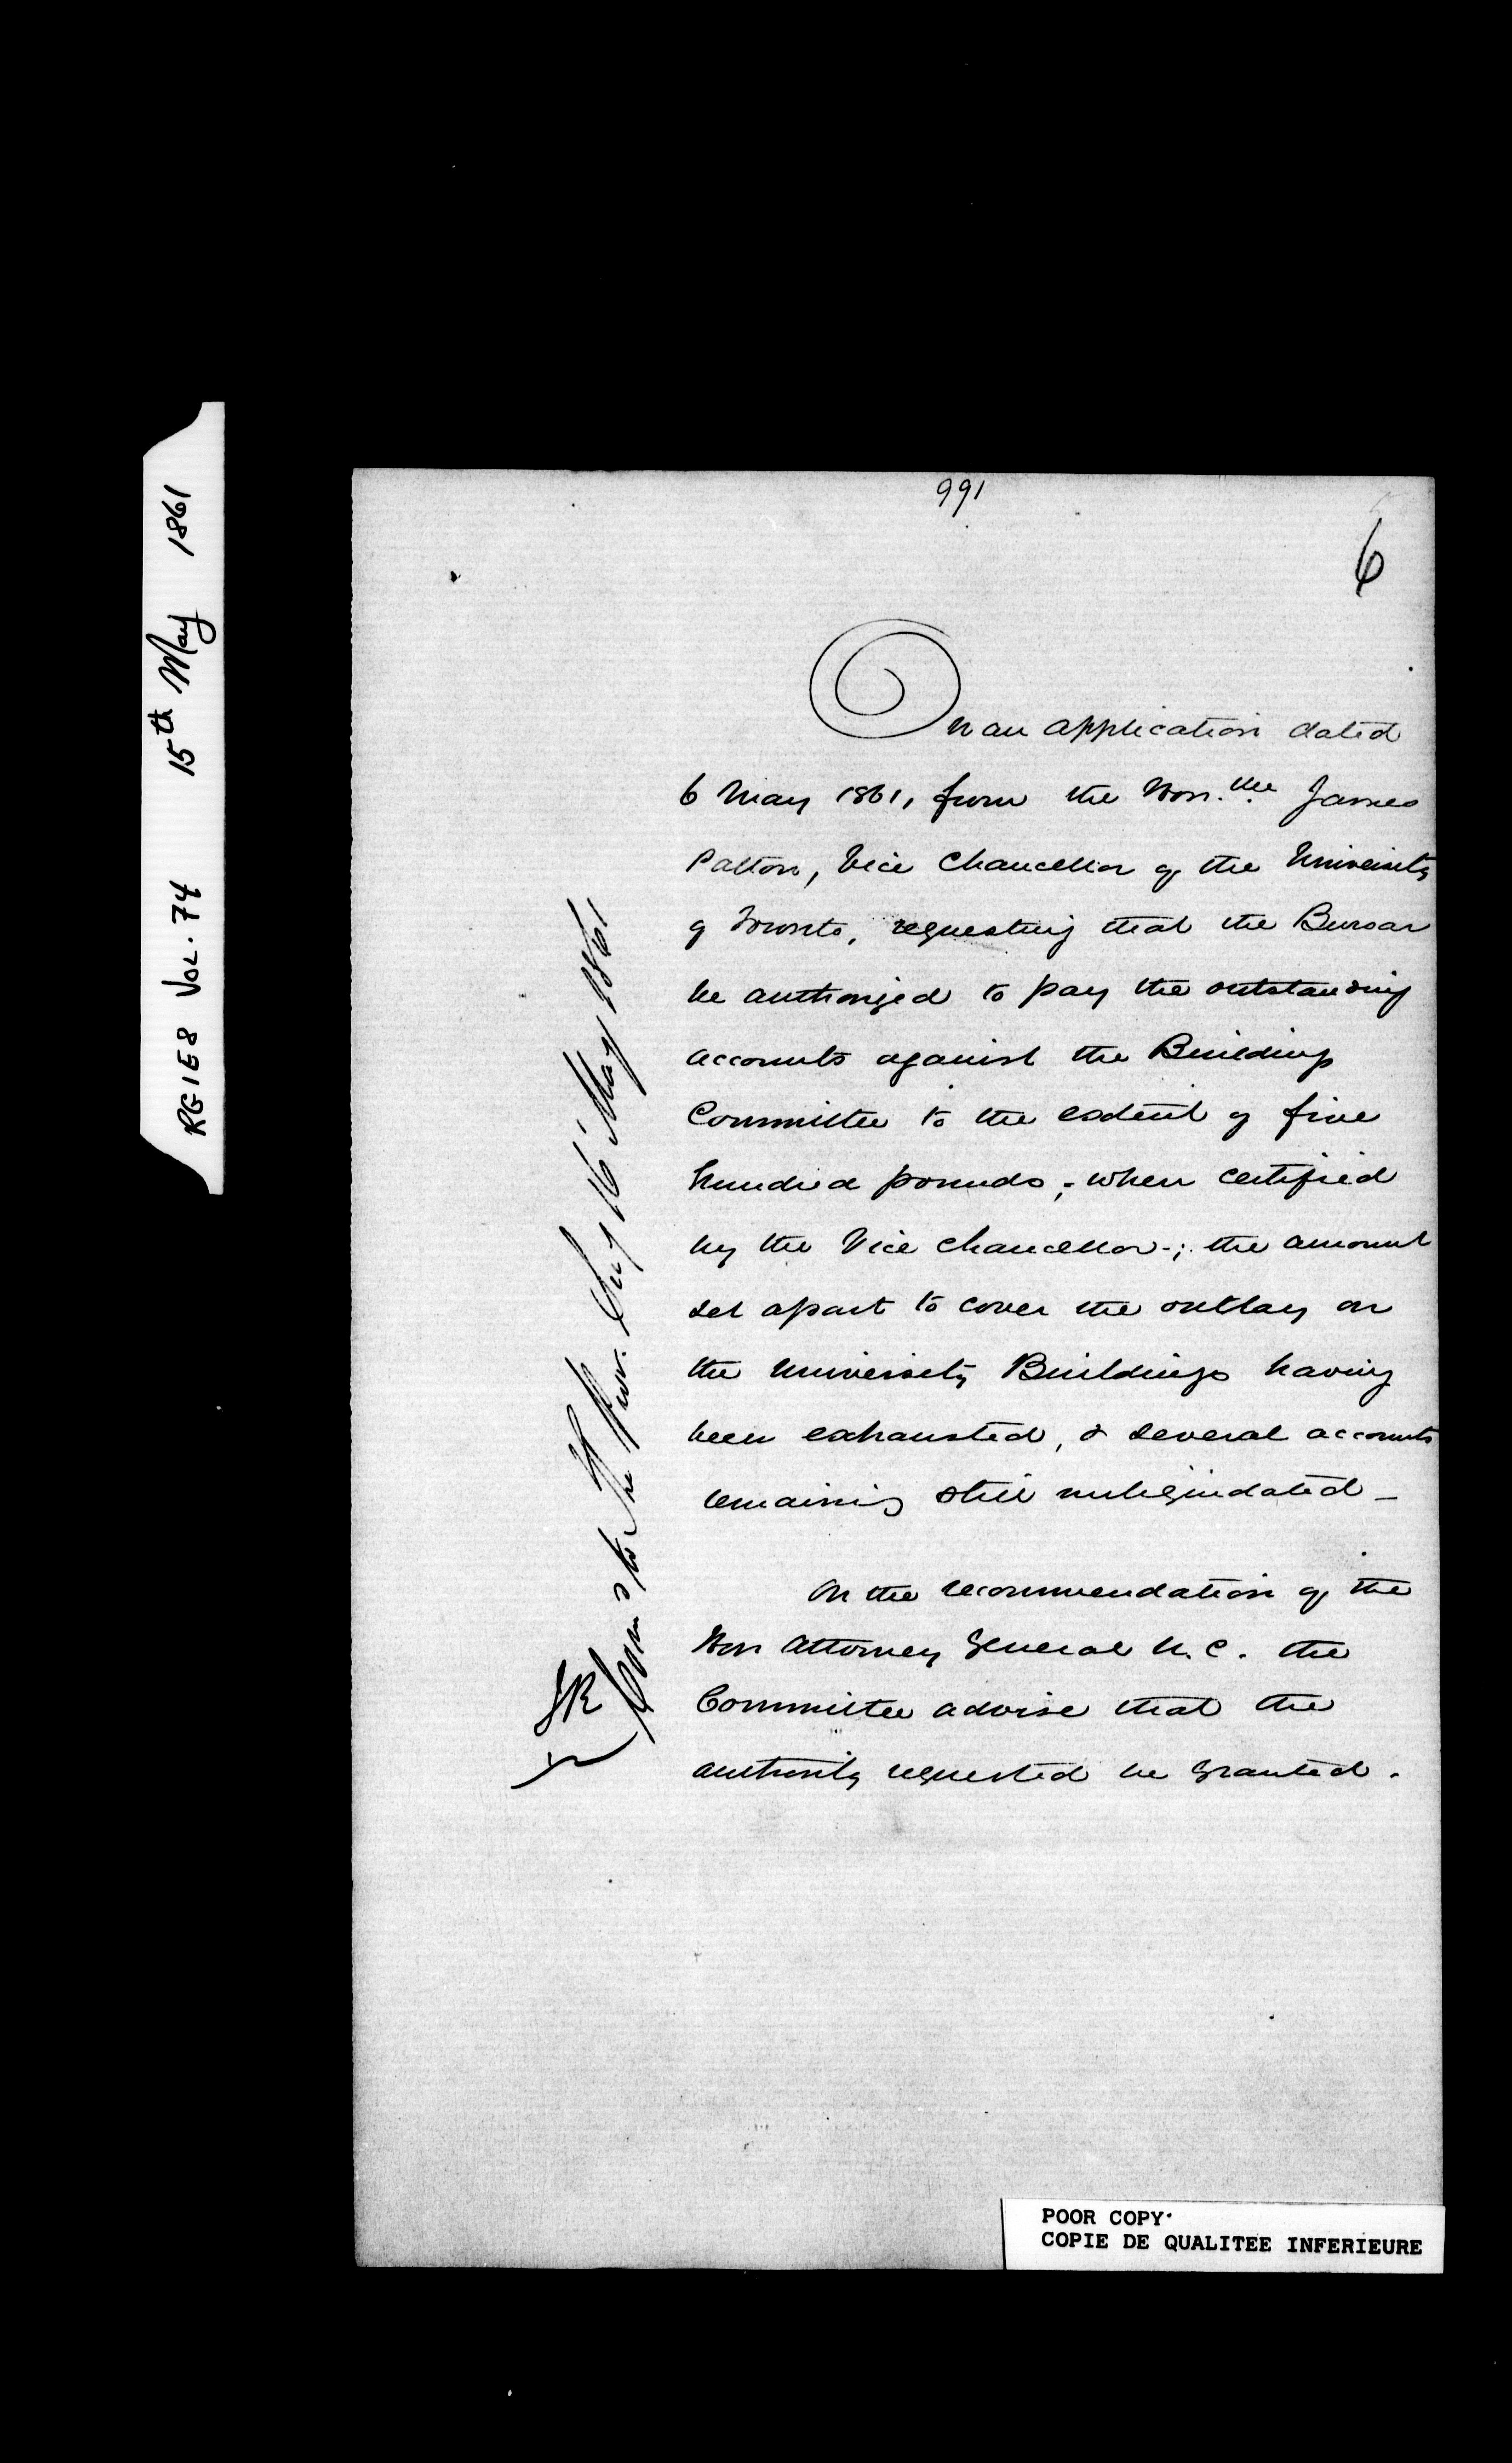 RG1E8 VOL. 74 15th May 1861
991
6
On an application dated
6 May 1861, from the Hon.ble James
Patton, Vice Chancellor of the University
of Toronto, requesting that the Bursar
be authorized to pay the outstanding
accounts against the Building
Committee to the extent of five
hundred pounds, when certified
by the Vice Chancellor -; the amount
set apart to cover the outlay on
the University Buildings having
been exhausted, & several accounts
remaining still unliquidated _
On the recommendation of the
Hon Attorney General U. C. the
Committee advise that the
authority requested be granted.
to the Prov. Secy 16 May 1861
POOR COPY
COPIE DE QUALITEE INFERIEURE